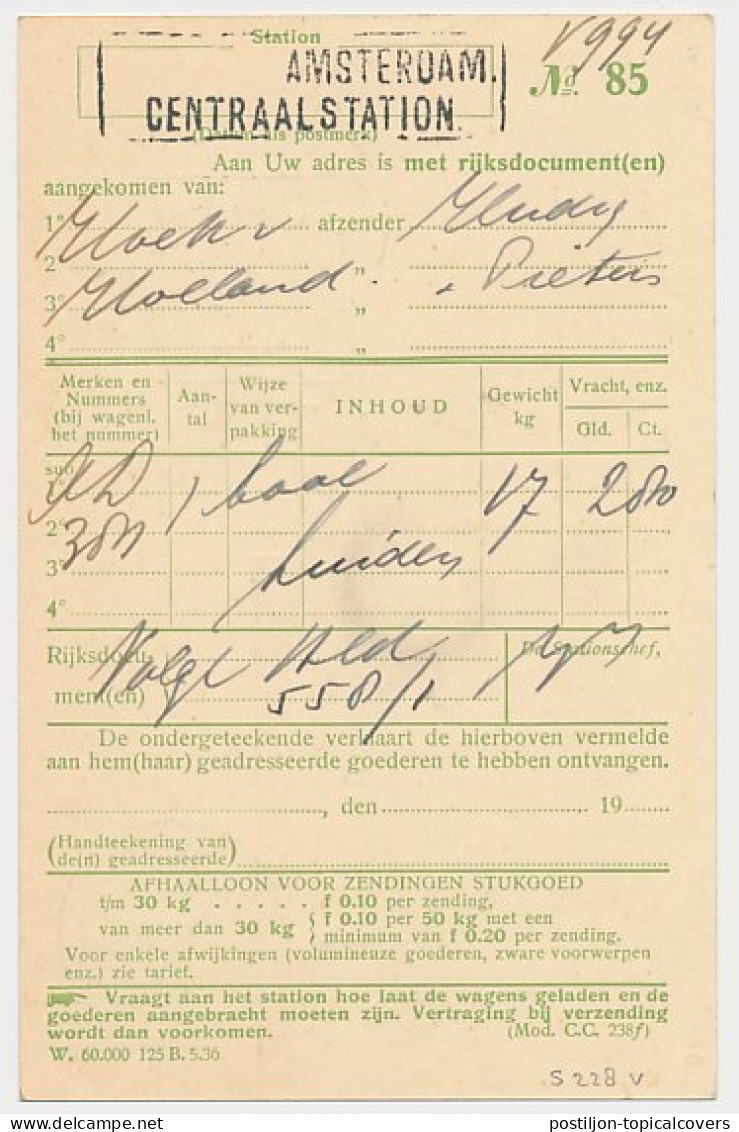 Station
V994
AMSTERDAM.
CENTRAALSTATION.
No. 85
(Datum als postmerk)
Aan Uw adres is met rijksdocument(en)
aangekomen van:
1° Hoek v afzender Hudig
2 „
3° Holland. „ Pieters
4° „
Merken en Nummers (bij wagenl. het nummer)
Aan-tal
Wijze van ver-pakking
INHOUD
Gewicht kg
Vracht, enz.
Gld. Ct.
1° 1 baal 17
2°
3° huiden
4°
Rijksdocu-
ment(en)
Volgt
558/1
De Stationschef,
De ondergeteekende verklaart de hierboven vermelde
aan hem(haar) geadresseerde goederen te hebben ontvangen.
, den 19
(Handteekening van
de(n) geadresseerde)
AFHAALLOON VOOR ZENDINGEN STUKGOED
t/m 30 kg . . . . . f 0.10 per zending,
van meer dan 30 kg { f 0.10 per 50 kg met een
minimum van f 0.20 per zending.
Voor enkele afwijkingen (volumineuze goederen, zware voorwerpen
enz.) zie tarief.
Vraagt aan het station hoe laat de wagens geladen en de
goederen aangebracht moeten zijn. Vertraging bij verzending
wordt dan voorkomen. (Mod. C.C. 238f)
W. 60.000 125 B. 5.36
S 228 v
postiljon-topicalcovers